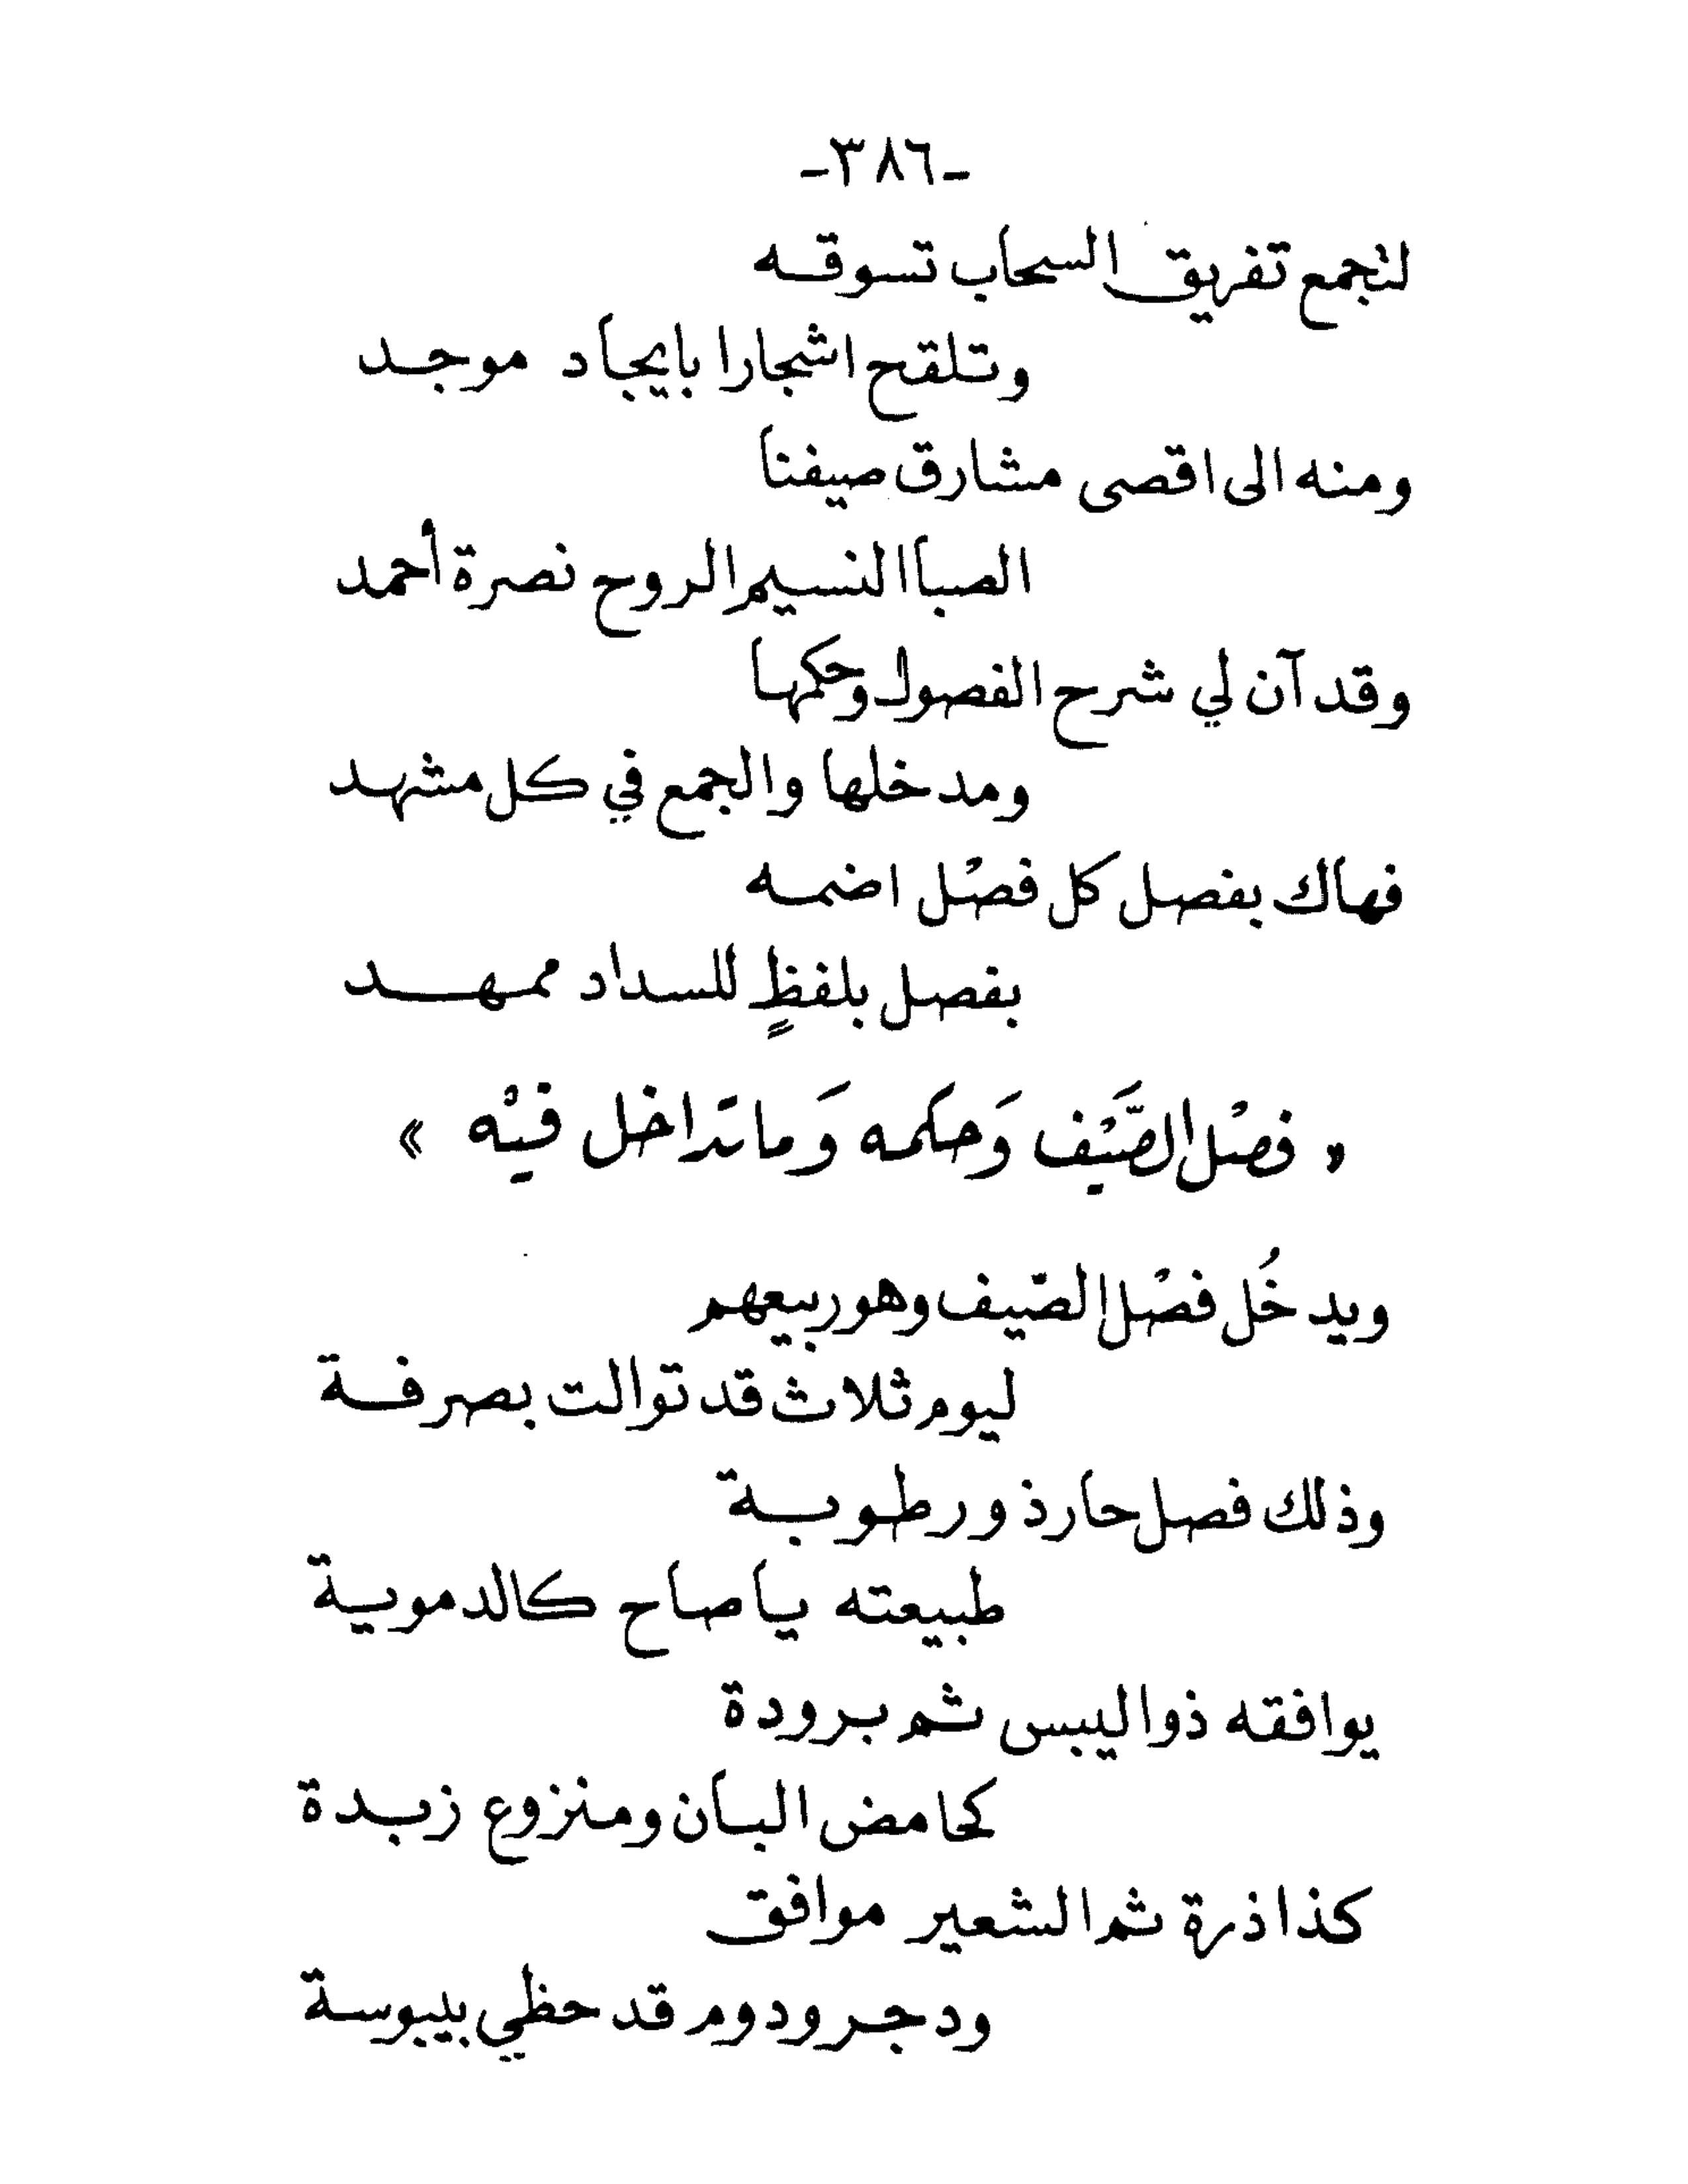 -٣٨٦-
لتجمع تفريق السحاب تسوقه
وتلقح اشجارا بايجاد موجد
ومنه الى اقصى مشارق صيفنا
الصبا النسيم الروح نصرة أحمد
وقد آن لي شرح الفصول وحكمها
ومدخلها والجمع في كل مشهد
فهاك بفصل كل فصْل اضمه
بفصل بلفظٍ للسداد ممهد
« فصْل الصَّيْف وَحكمه وَما تداخل فيْه »
ويدخُل فصْل الصّيف وهو ربيعهم
ليوم ثلاث قد توالت بصرفة
وذلك فصل حارذ ورطوبة
طبيعته ياصاح كالدموية
يوافقه ذو اليبس ثم برودة
كحامض البان ومنزوع زبدة
كذا ذرة ثم الشعير موافق
ودجر ودوم قد حظي بيبوسة